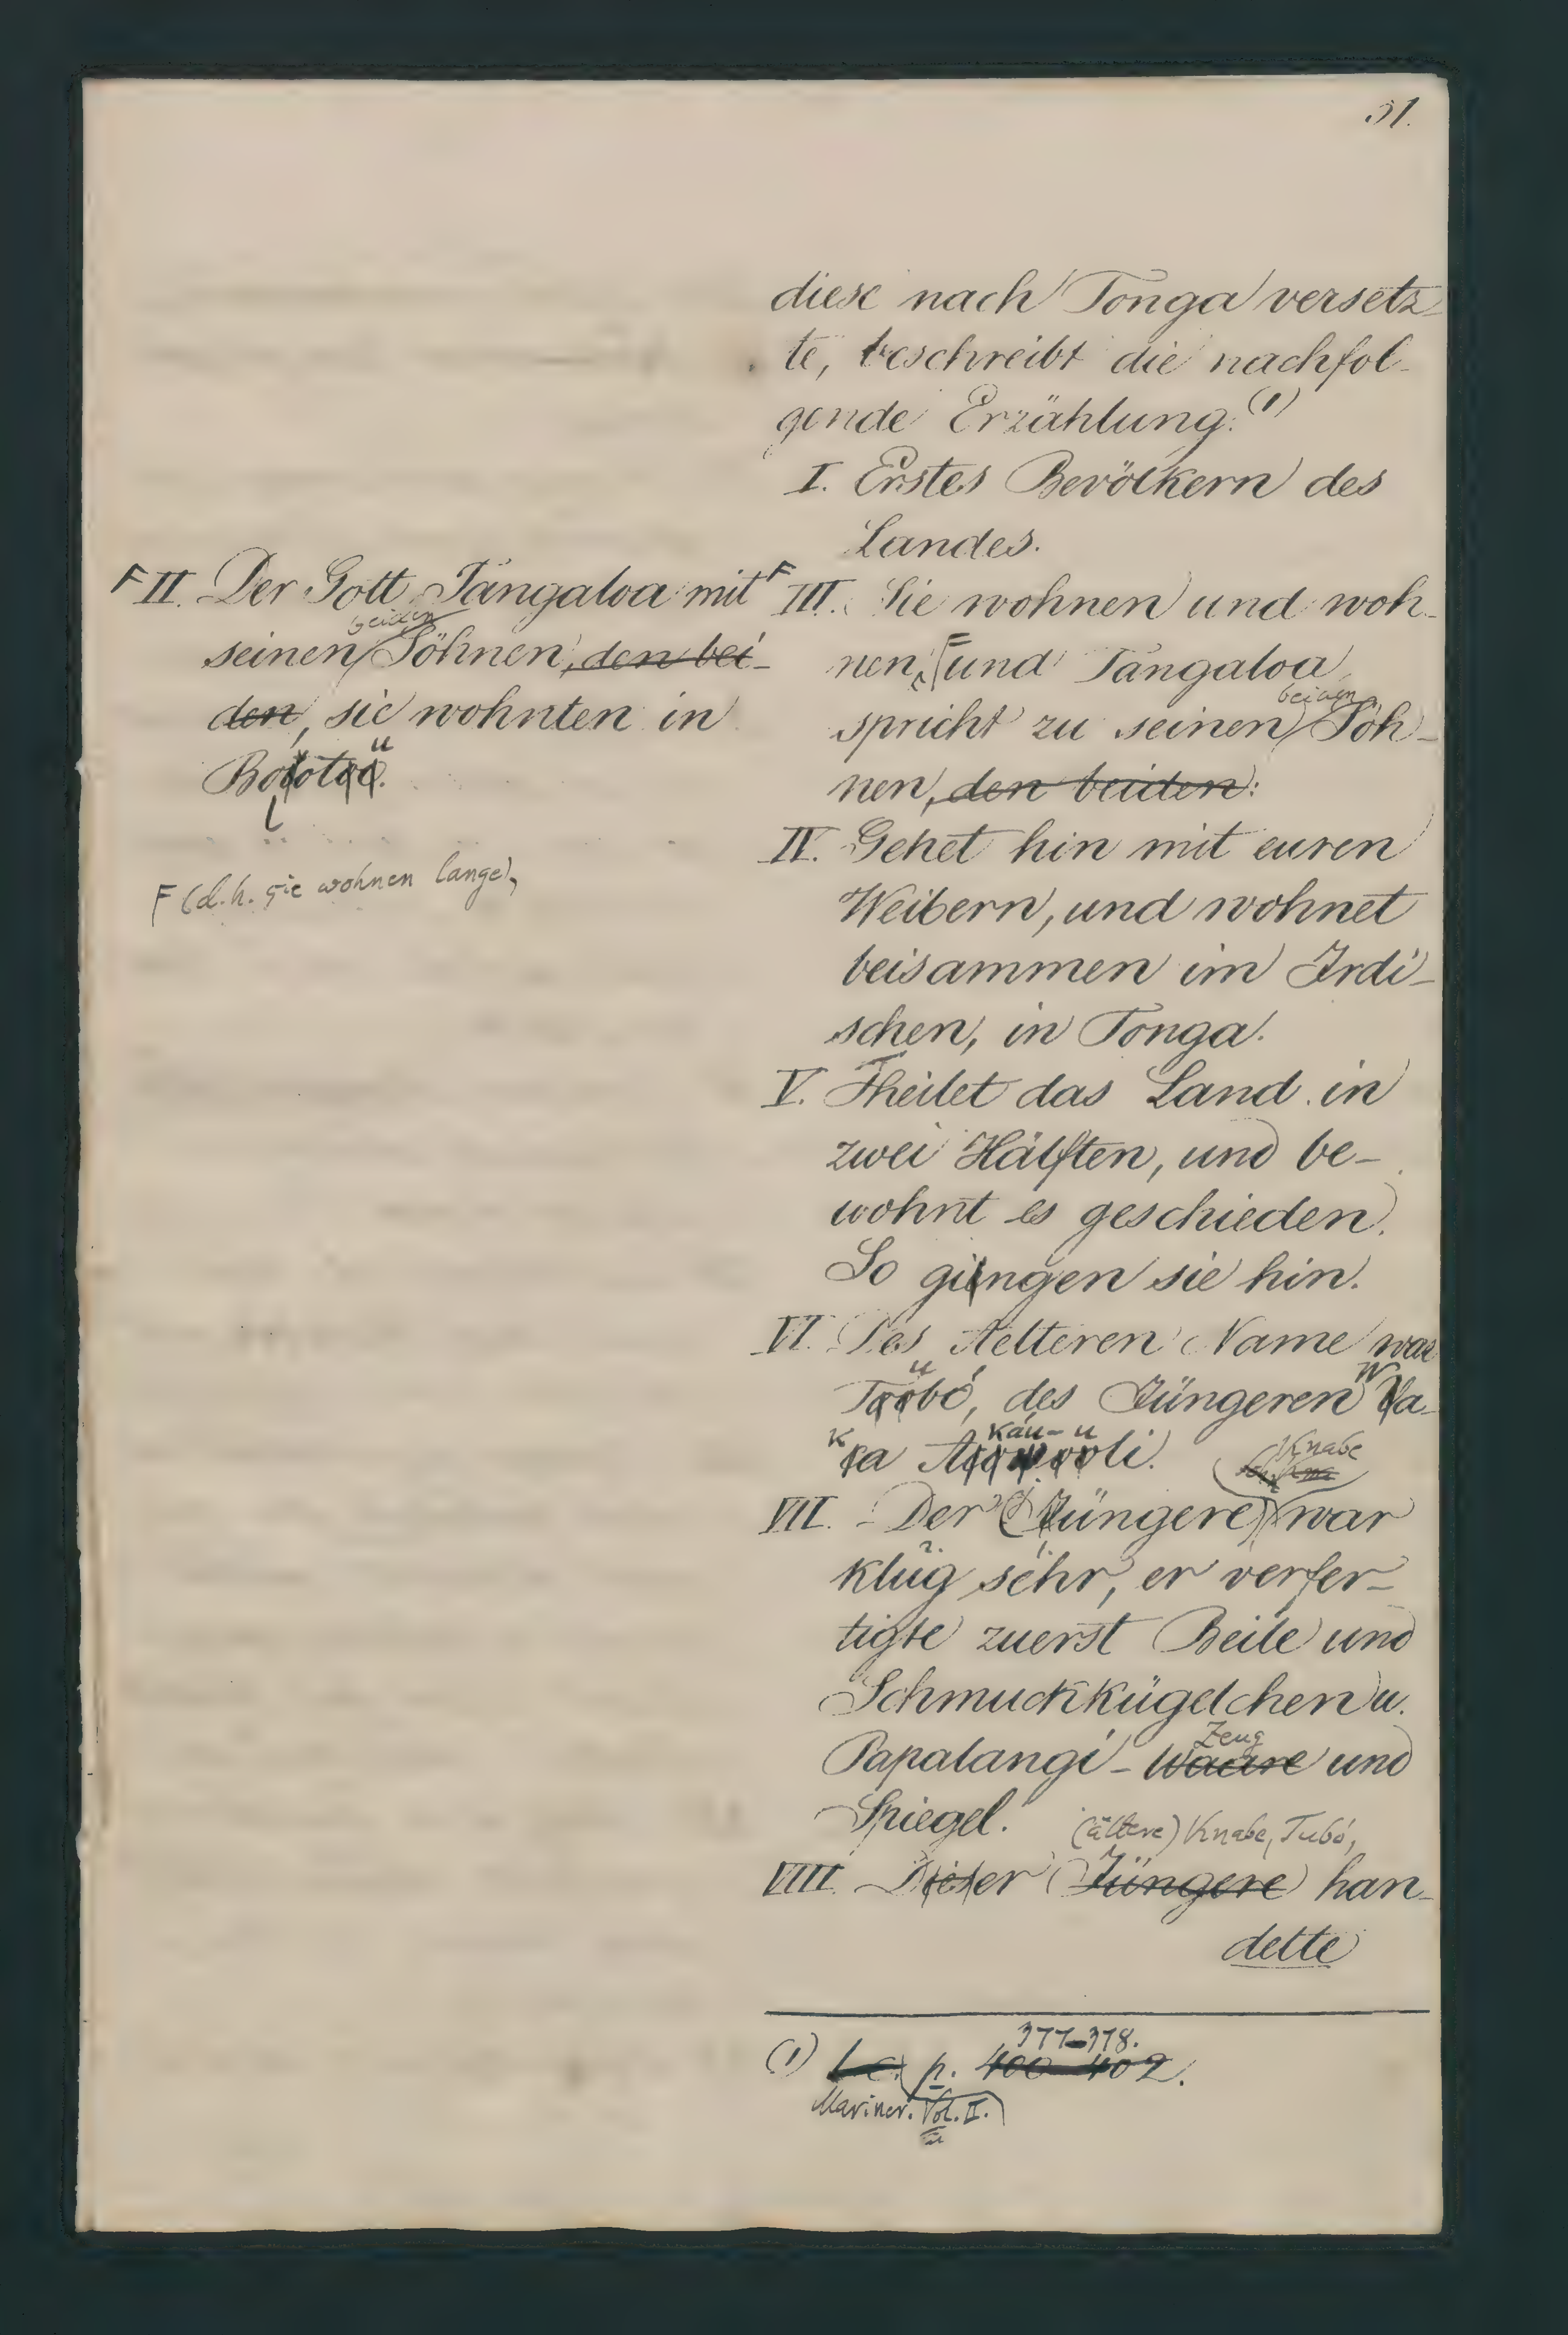 31.
diese nach Tonga versetz-
te, beschreibt die nachfol-
gende Erzählung.(1)
I. Erstes Bevölkern des
Landes.
F II. Der Gott Tángaloa mit
beiden
seinen Söhnen, den bei-
den, sie wohnten in
u
Bolotoo.
l
F (d.h. sie wohnen lange),
F III. Sie wohnen und woh-
nen, F und Tángaloa
beiden
spricht zu seinen Söh-
nen, den beiden:
IV. Gehet hin mit euren
Weibern, und wohnet
beisammen im Irdi-
schen, in Tonga.
V. Theilet das Land in
zwei Hälften, und be-
wohnt es geschieden.
So giengen sie hin.
VI. Des Aelteren Name war
u W
Toobó, des Jüngeren Va-
k káu-u
ca Acowooli.
Knabe
VII. Der (Jüngere) war
klug sehr, er verfer-
tigte zuerst Beile und
Schmuckkügelchen u.
Zeug
Papalangi-Waare und
Spiegel.
(ältere) Knabe, Tubó,
VIII. Dieser Jüngere han-
delte
377-378.
(1) l.c. p. 400-402.
Mariner. Vol. II.